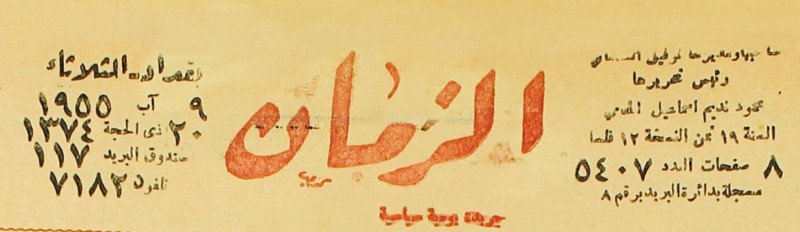 صاحبها ومديرها توفيق السمعاني
رئيس تحريرها
محمود نديم اسماعيل المحامي
السنة ١٩ ثمن النسخة ١٢ فلسا
٨ صفحات العدد ٥٤٠٧
مسجلة بدائرة البريد برقم ٨
الزمان
جريدة يومية سياسية
بغداد الثلاثاء
٩ آب ١٩٥٥
٢٠ ذى الحجة ١٣٧٤
صندوق البريد ١١٧
تلفون ٧١٨٣